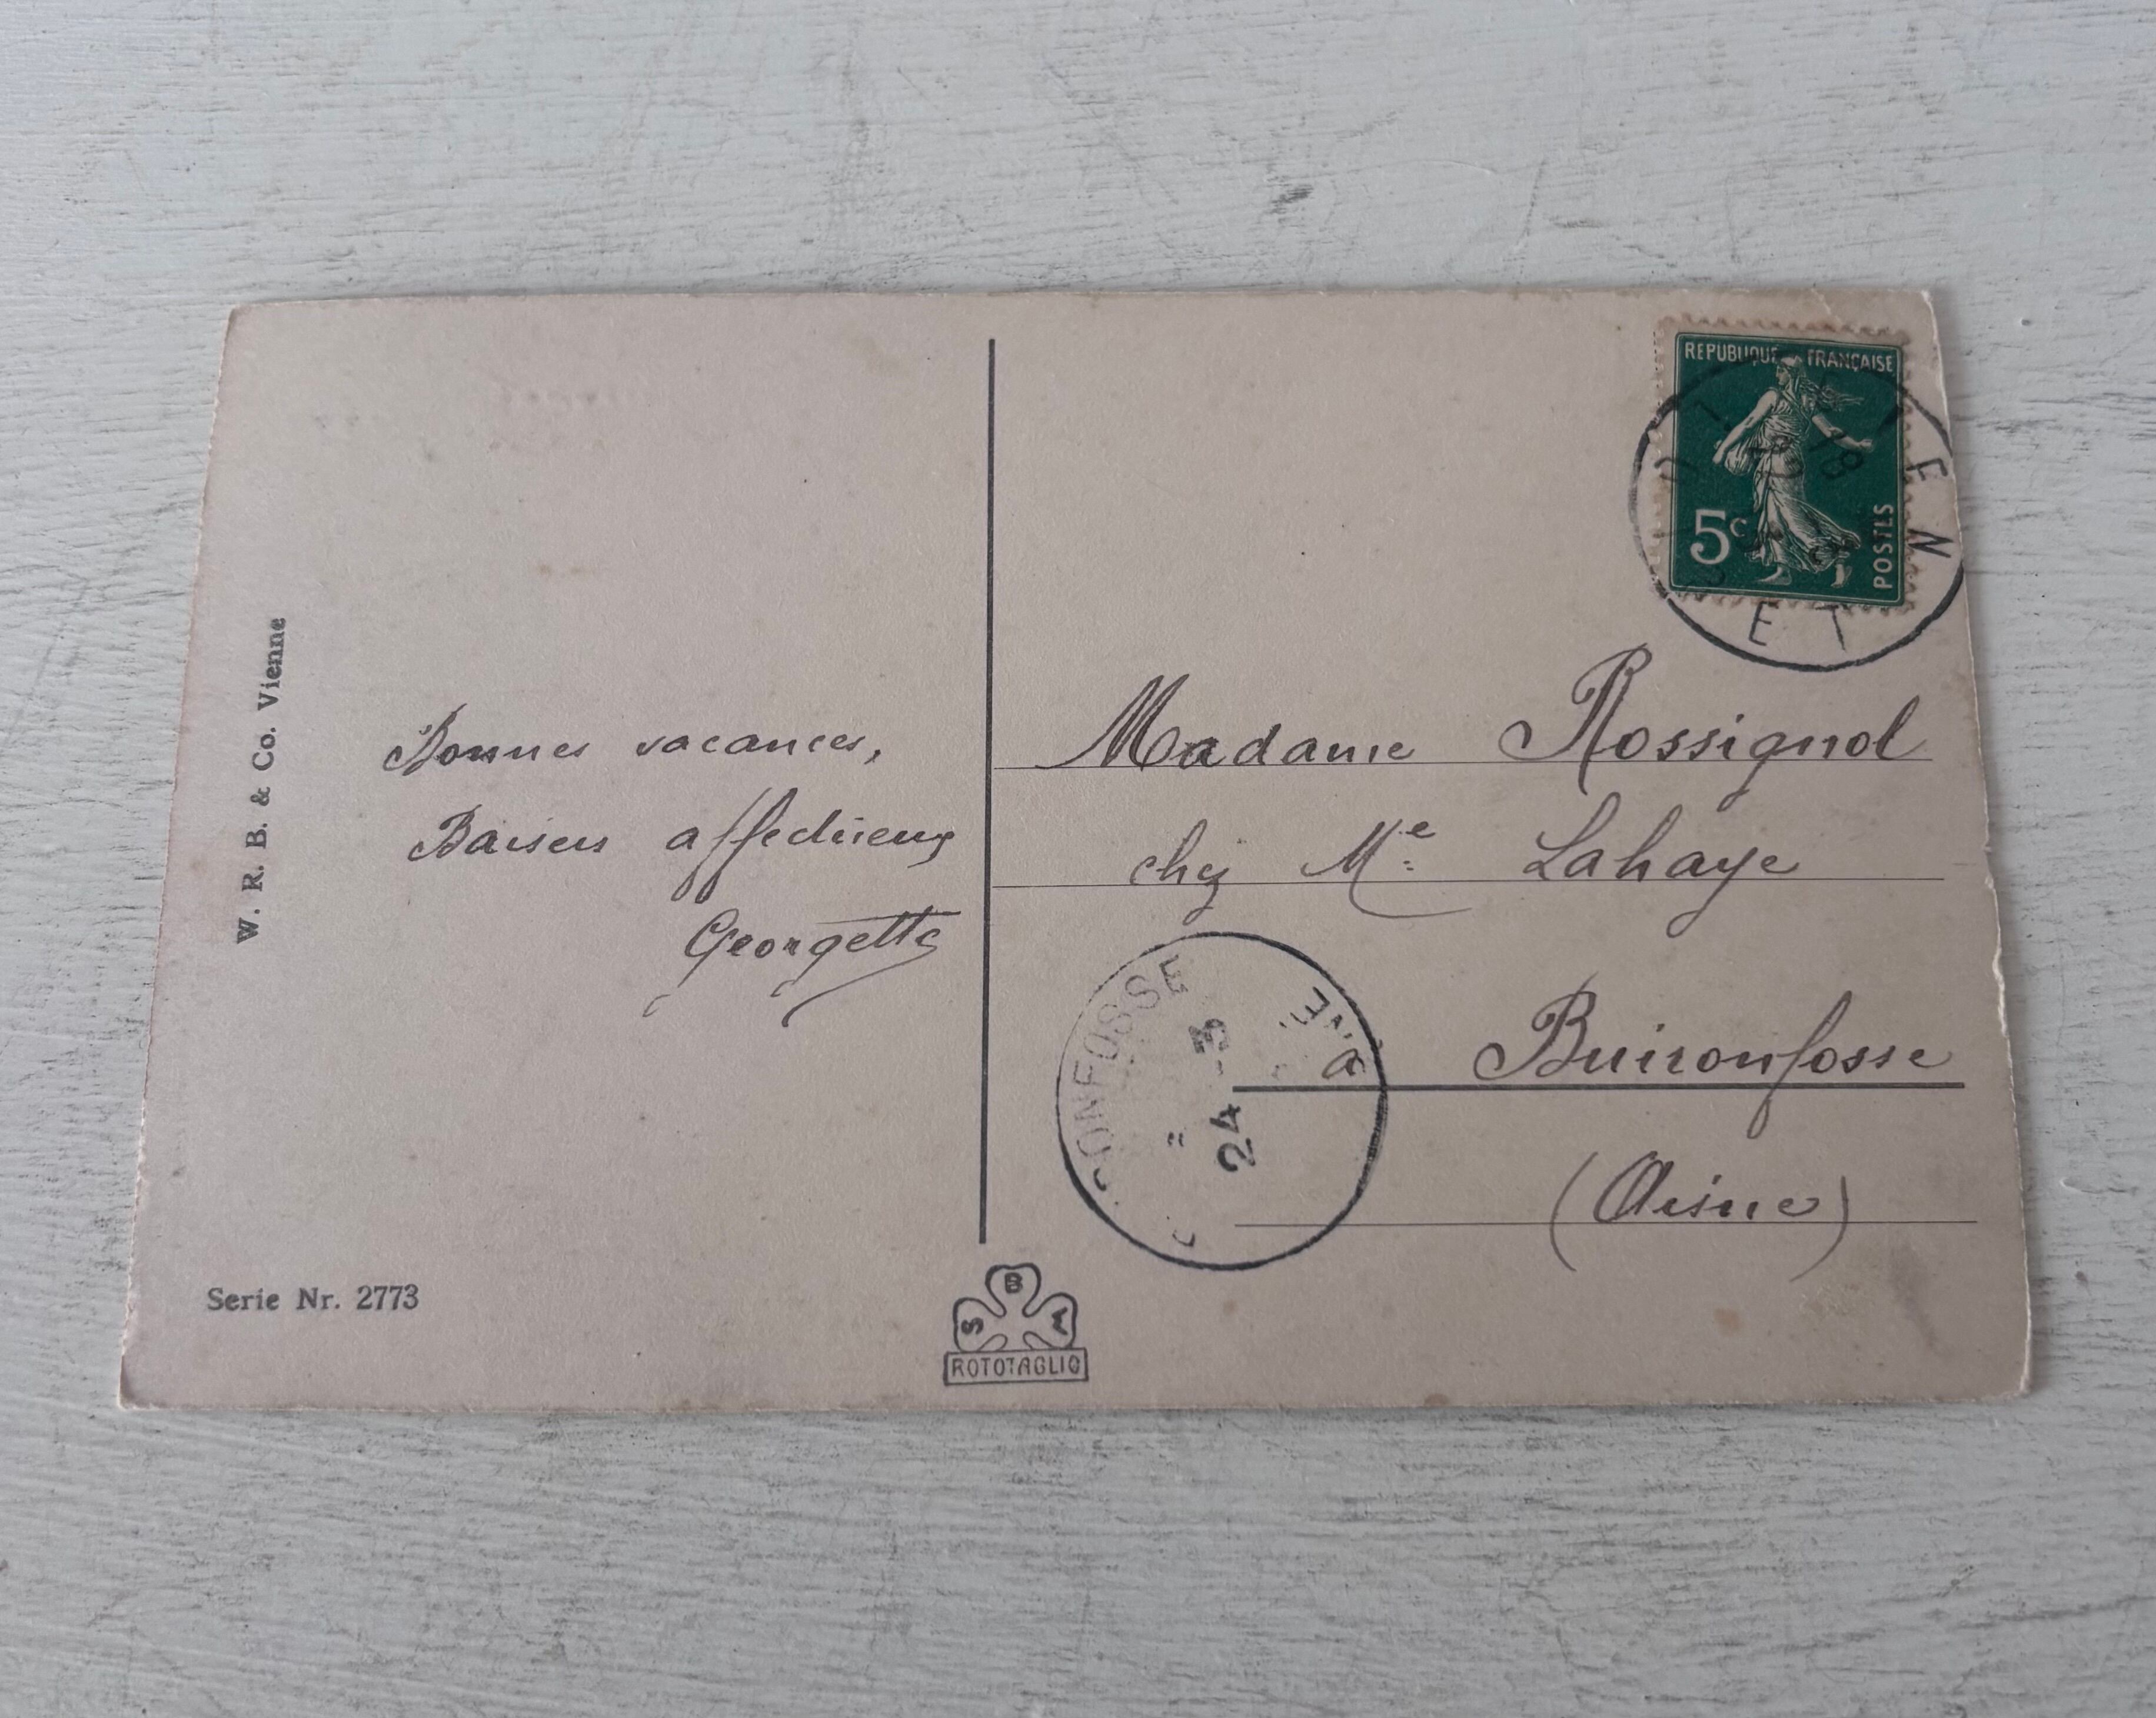 W. R. B. & Co. Vienne
Bonnes vacances,
Baisers affectueux
Georgette
Serie Nr. 2773
S B M
ROTOTAGLIO
REPUBLIQUE FRANÇAISE
5c
POSTES
Madame Rossignol
chez Me Lahaye
à Buironfosse
(Aisne)
24 - 3